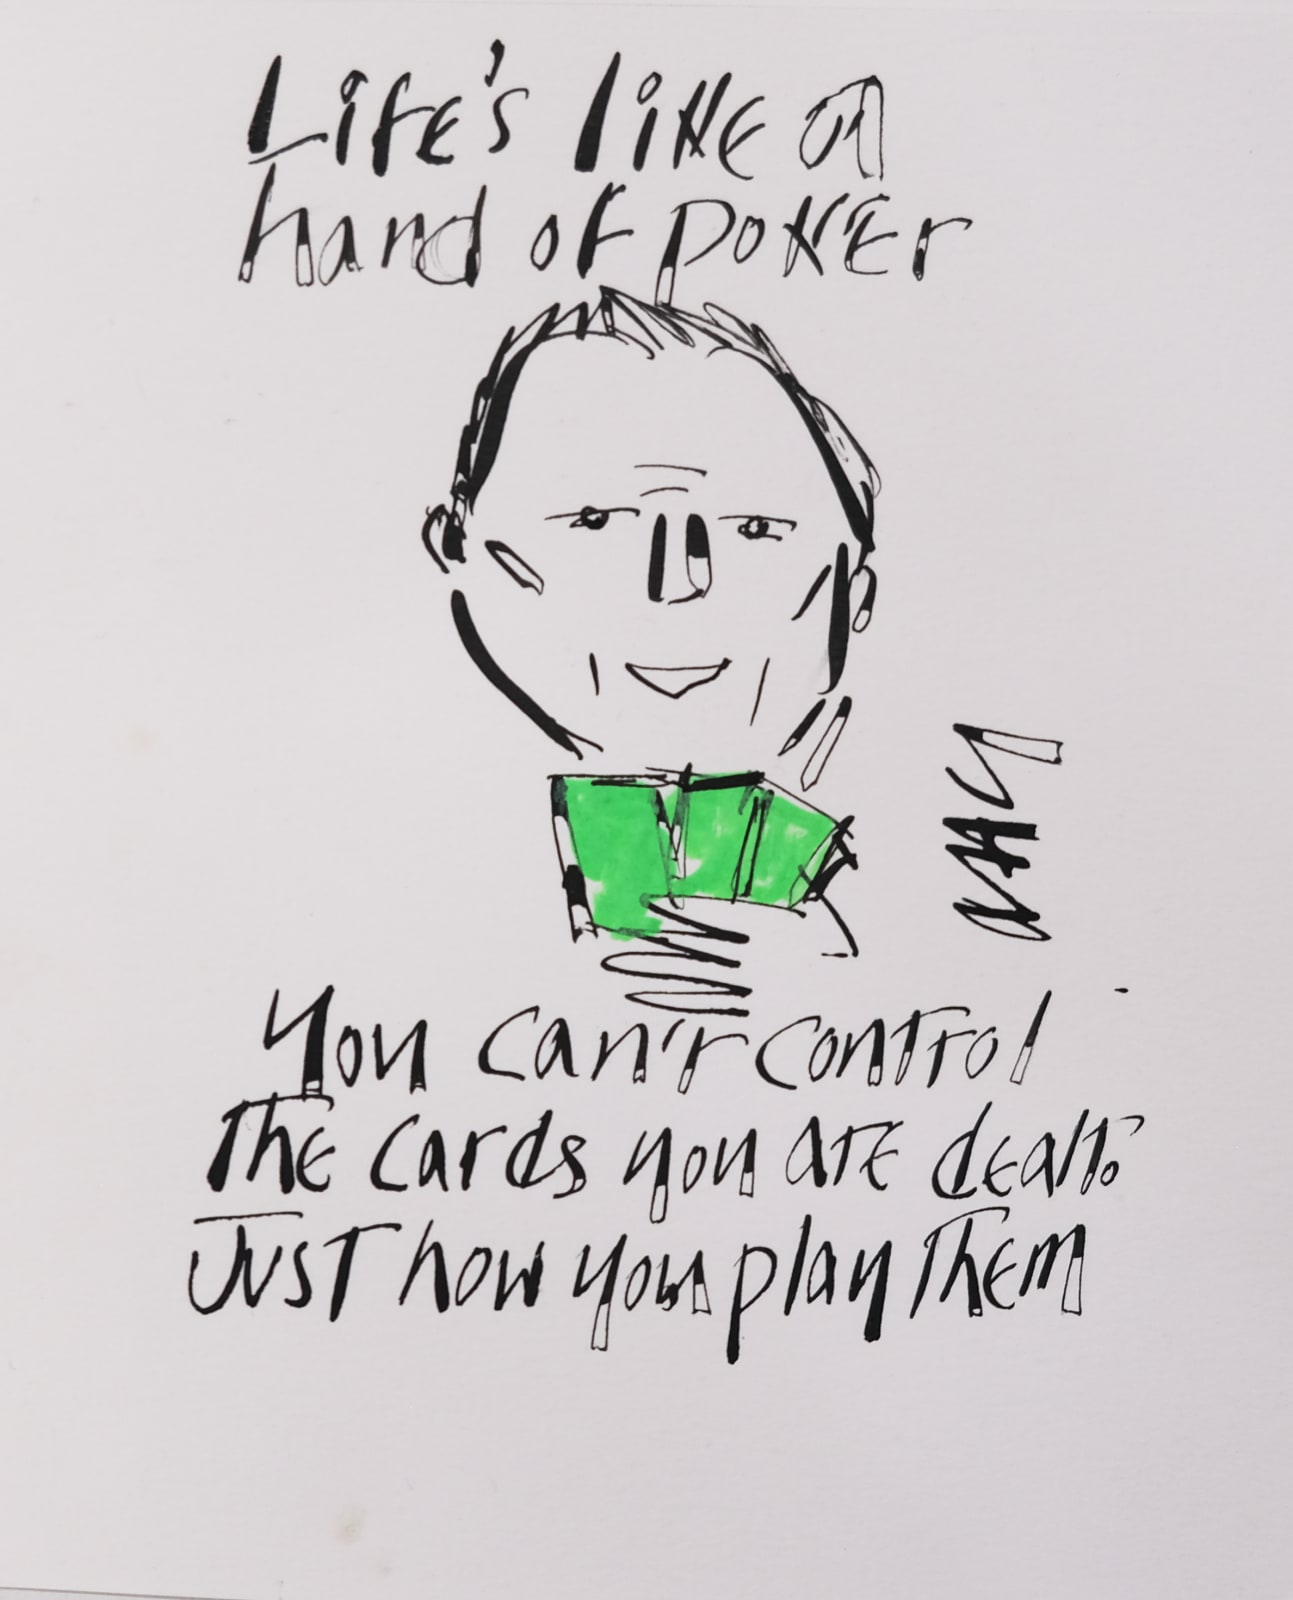 Life's like a
hand of poker
You can't control
The cards you are dealt.
Just how you play them